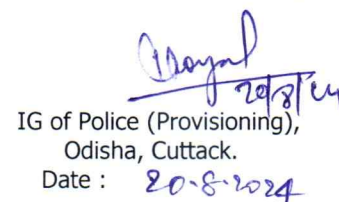 20/8/24
IG of Police (Provisioning),
Odisha, Cuttack.
Date : 20-8-2024